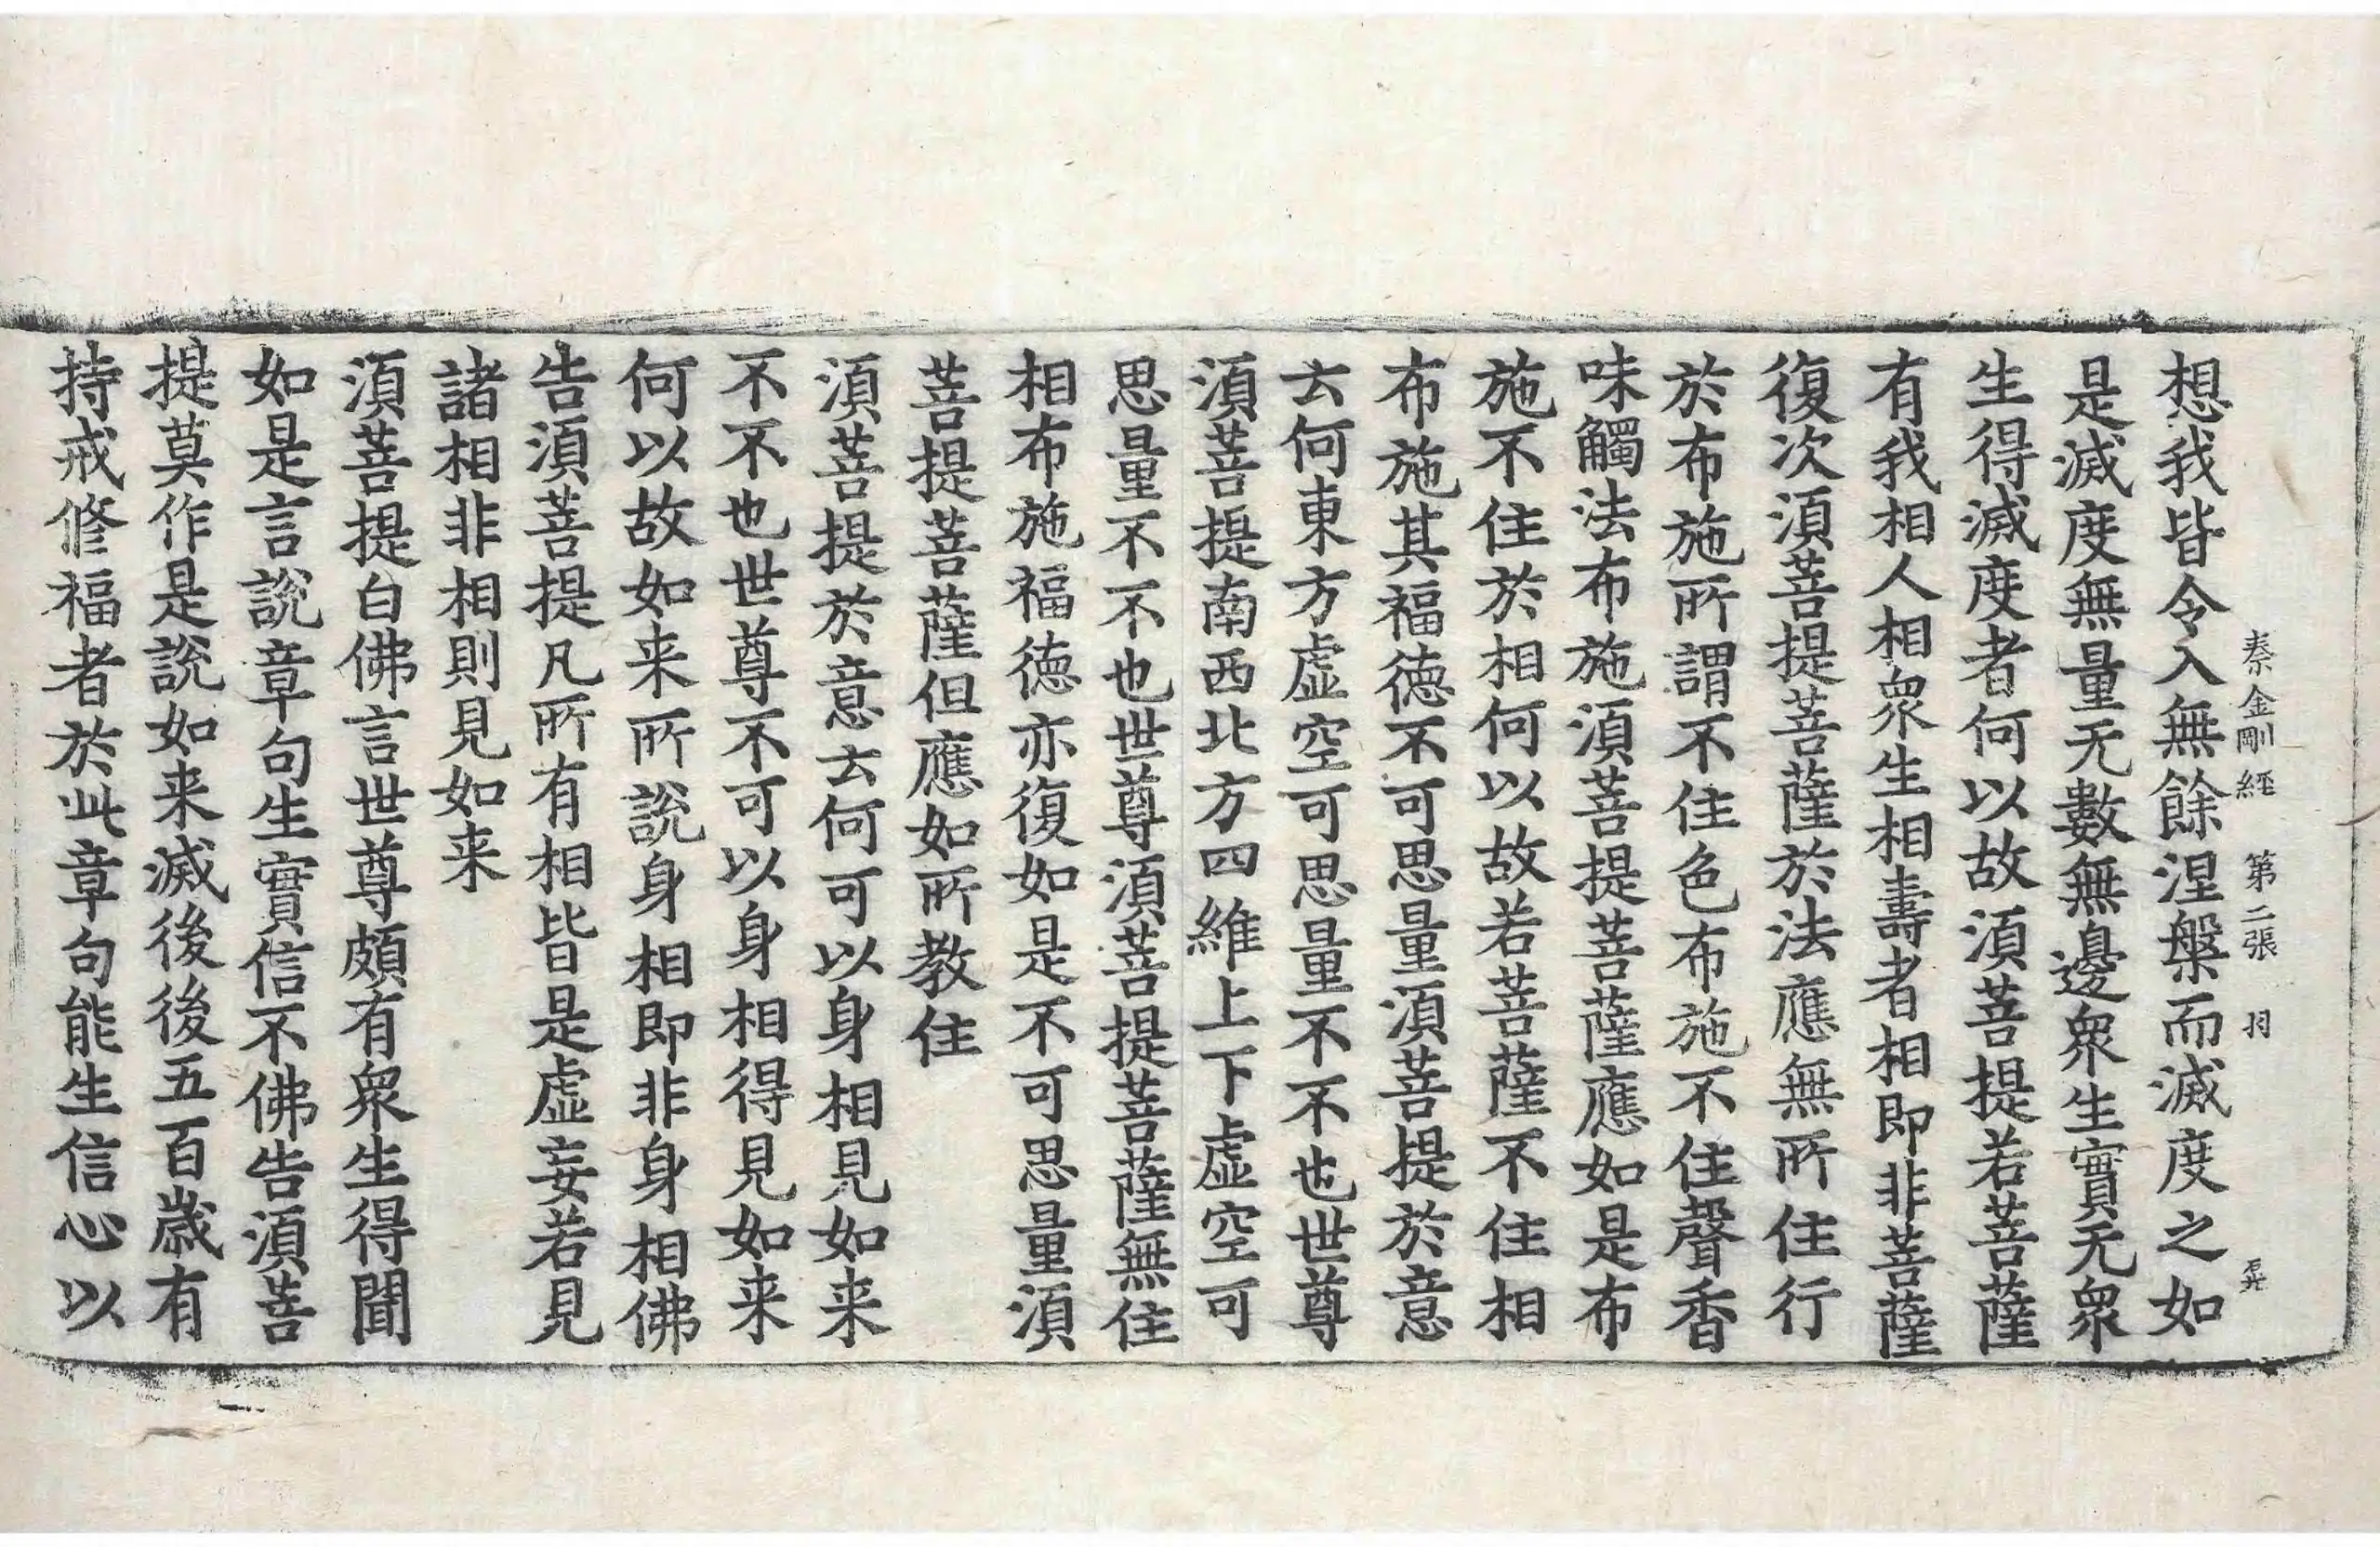 秦金剛經 第二張 羽
想我皆令入無餘涅槃而滅度之如
是滅度無量无數無邊衆生實无衆
生得滅度者何以故須菩提若菩薩
有我相人相衆生相壽者相即非菩薩
復次須菩提菩薩於法應無所住行
於布施所謂不住色布施不住聲香
味觸法布施須菩提菩薩應如是布
施不住於相何以故若菩薩不住相
布施其福德不可思量須菩提於意
云何東方虛空可思量不不也世尊
須菩提南西北方四維上下虛空可
思量不不也世尊須菩提菩薩無住
相布施福德亦復如是不可思量須
菩提菩薩但應如所教住
須菩提於意云何可以身相見如来
不不也世尊不可以身相得見如来
何以故如来所說身相即非身相佛
告須菩提凡所有相皆是虛妄若見
諸相非相則見如来
須菩提白佛言世尊頗有衆生得聞
如是言說章句生實信不佛告須菩
提莫作是說如来滅後後五百歲有
持戒修福者於此章句能生信心以